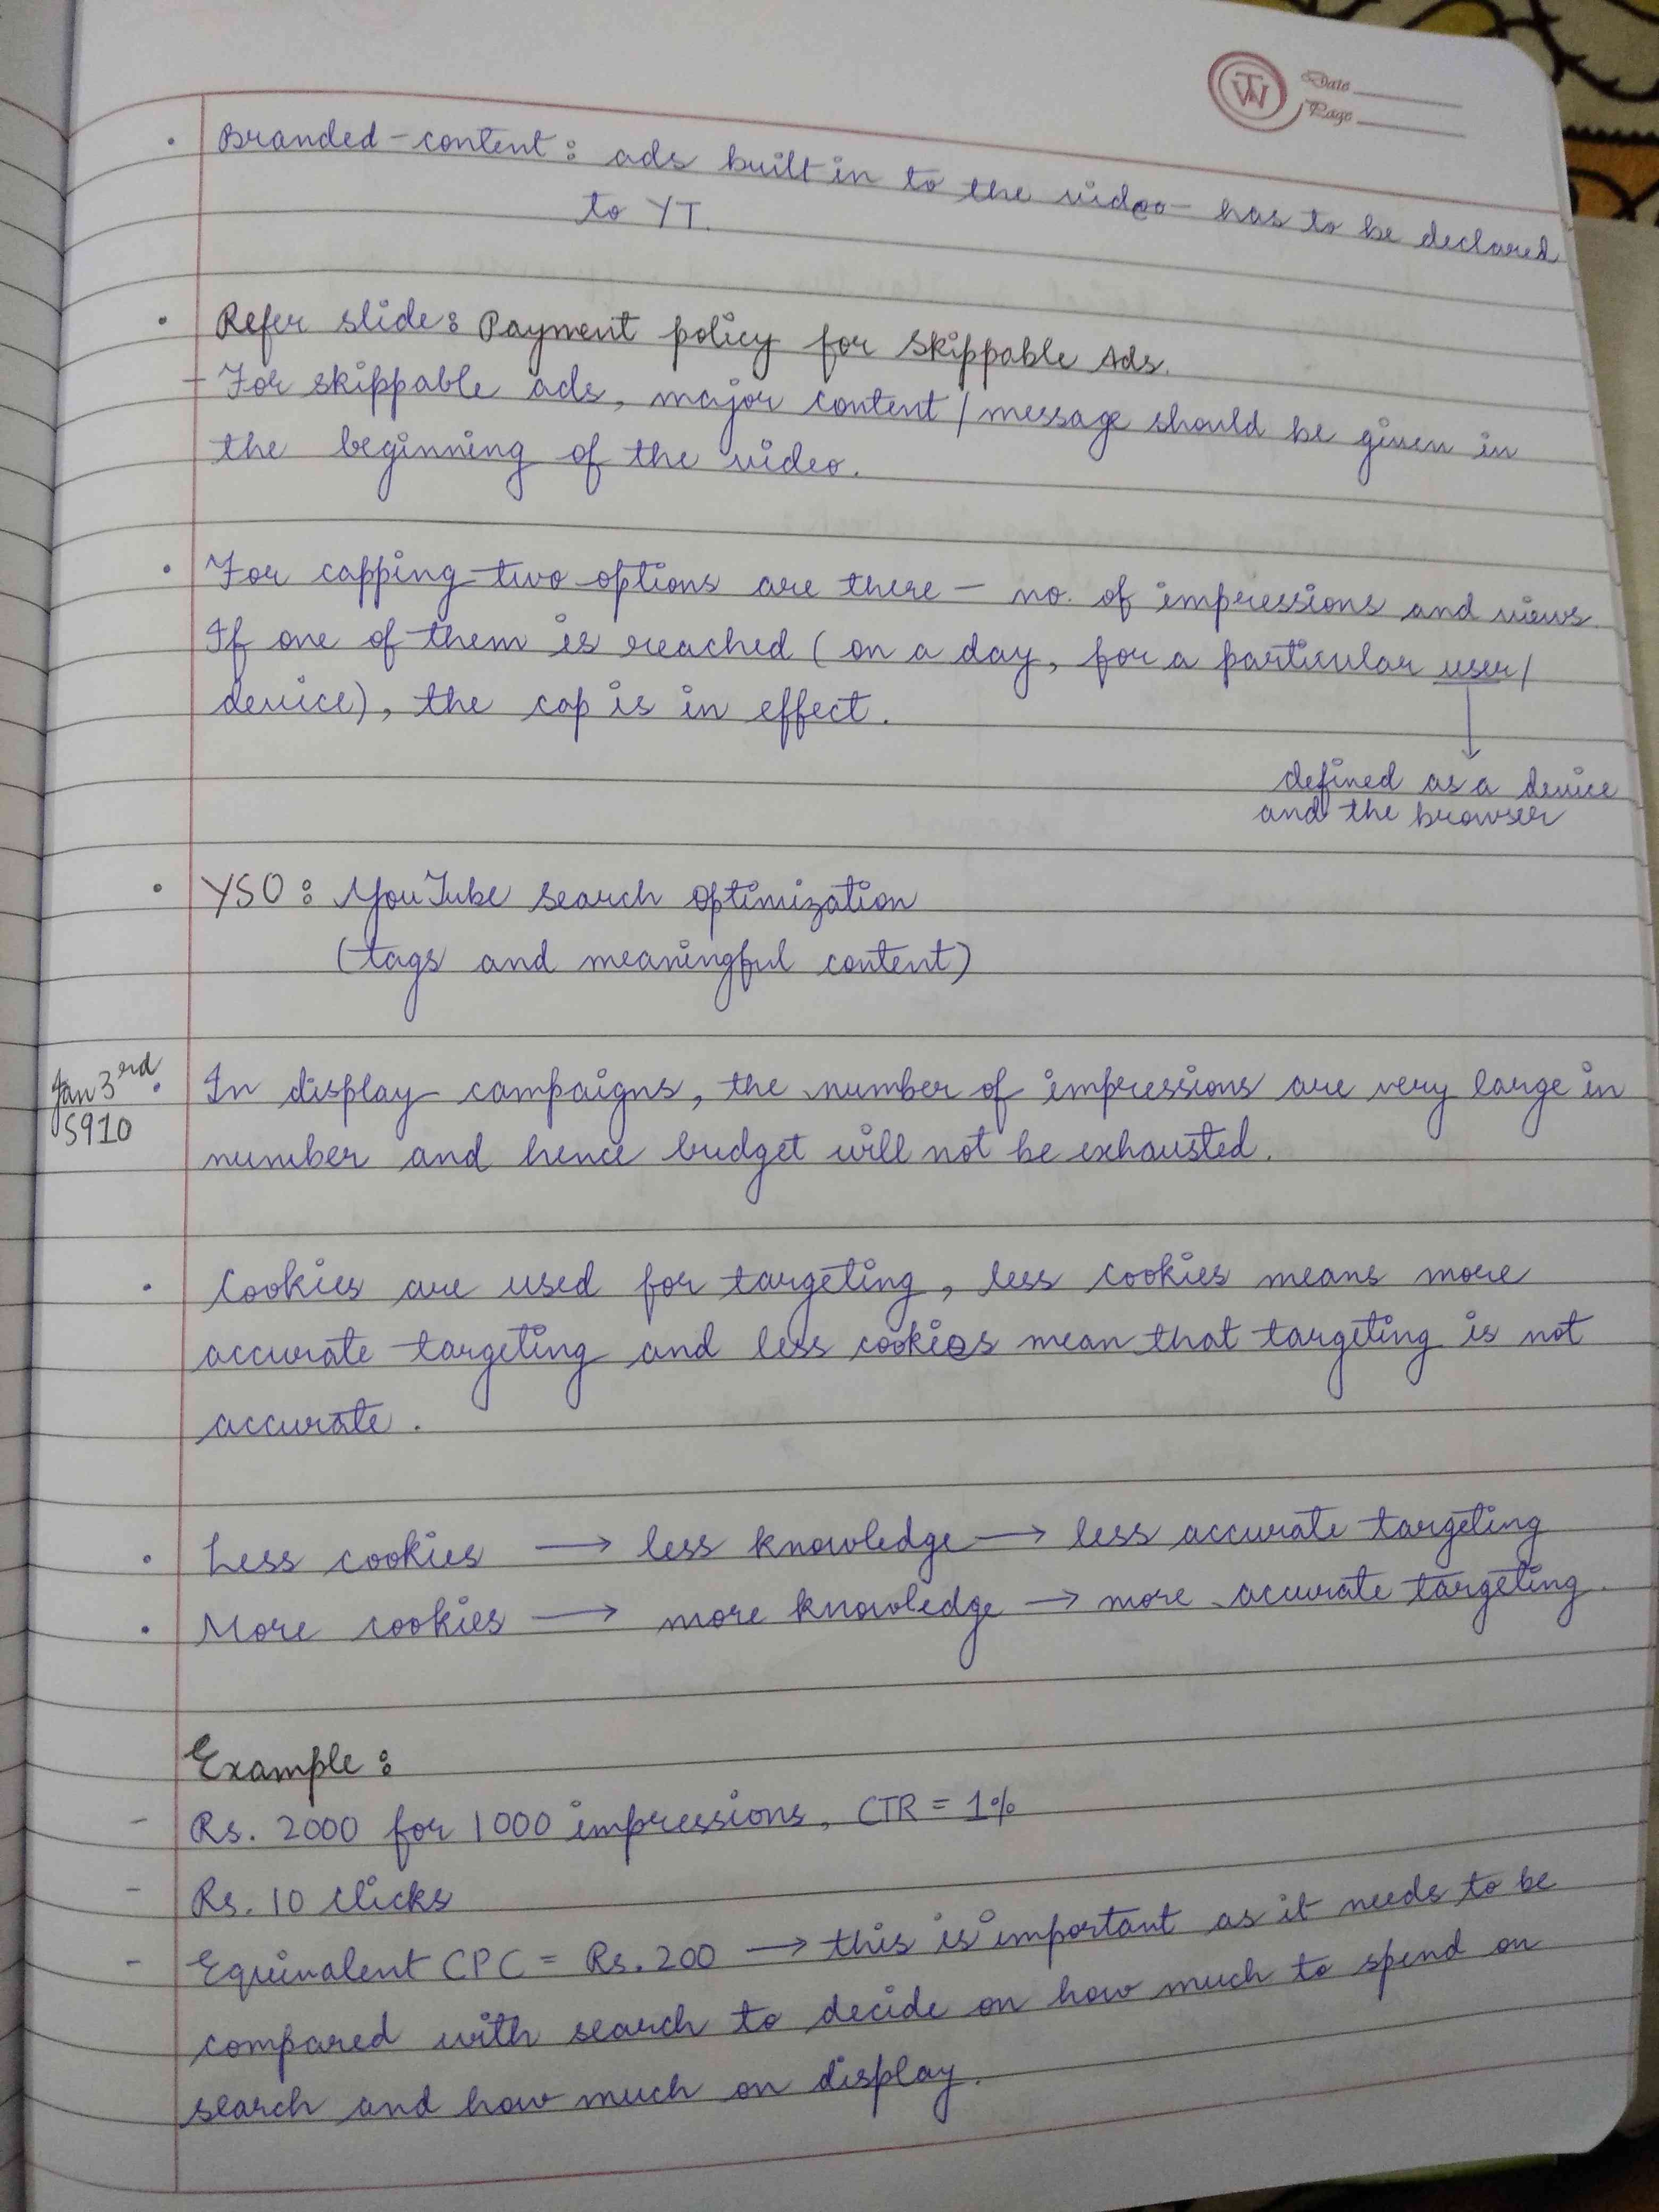 TW
Date
Page
• Branded-content: ads built in to the video - has to be declared
to YT.
• Refer slide: Payment policy for Skippable Ads.
- For skippable ads, major content / message should be given in
the beginning of the video.
• For capping two options are there - no. of impressions and views.
If one of them is reached (on a day, for a particular user/
device), the cap is in effect.
defined as a device
and the browser
• YSO: YouTube search optimization
(tags and meaningful content)
Jan 3rd
S910
• In display campaigns, the number of impressions are very large in
number and hence budget will not be exhausted.
• Cookies are used for targeting, less cookies means more
accurate targeting and less cookies mean that targeting is not
accurate.
• Less cookies → less knowledge → less accurate targeting
• More cookies → more knowledge → more accurate targeting.
Example:
- Rs. 2000 for 1000 impressions, CTR = 1%
- Rs. 10 clicks
- Equivalent CPC = Rs. 200 → this is important as it needs to be
compared with search to decide on how much to spend on
search and how much on display.